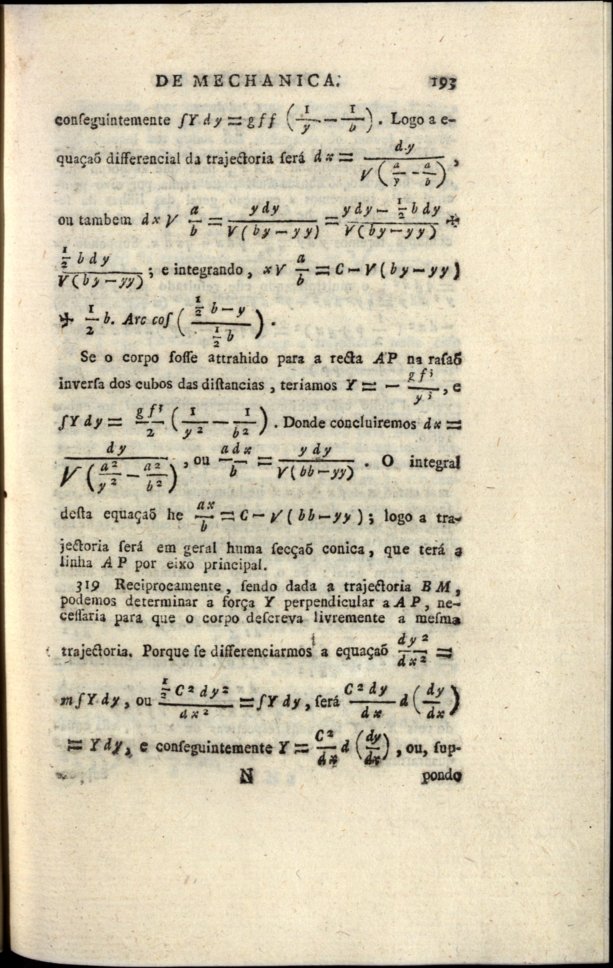 DE MECHANICA. 193
conſeguintemente ∫Y dy = gff (1/y − 1/b). Logo a e-
quaçaõ differencial da trajectoria ſerá dx = dy / √(a/y − a/b),
ou tambem dx √ a/b = y dy / √(by − yy) = y dy − ½ b dy / √(by − yy) ✠
½ b dy / √(by − yy); e integrando, x√ a/b = C − √(by − yy)
✠ 1/2 b. Arc coſ (½ b − y / ½ b).
Se o corpo foſſe attrahido para a recta AP na raſaõ
inverſa dos cubos das diſtancias, teriamos Y = − gf³/y³, e
∫Y dy = gf³/2 (1/y² − 1/b²). Donde concluiremos dx =
dy / √(a²/y² − a²/b²), ou a dx / b = y dy / √(bb − yy). O integral
deſta equaçaõ he ax/b = C − √(bb − yy); logo a tra-
jectoria ſerá em geral huma ſecçaõ conica, que terá a
linha AP por eixo principal.
319 Reciprocamente, ſendo dada a trajectoria BM,
podemos determinar a força Y perpendicular a AP, ne-
ceſſaria para que o corpo deſcreva livremente a meſma
trajectoria. Porque ſe differenciarmos a equaçaõ dy²/dx² =
m∫Y dy, ou ½ C² dy² / dx² = ∫Y dy, ſerá C² dy / dx d (dy/dx)
= Y dy, e conſeguintemente Y = C²/dx d (dy/dx), ou, ſup-
N pondo